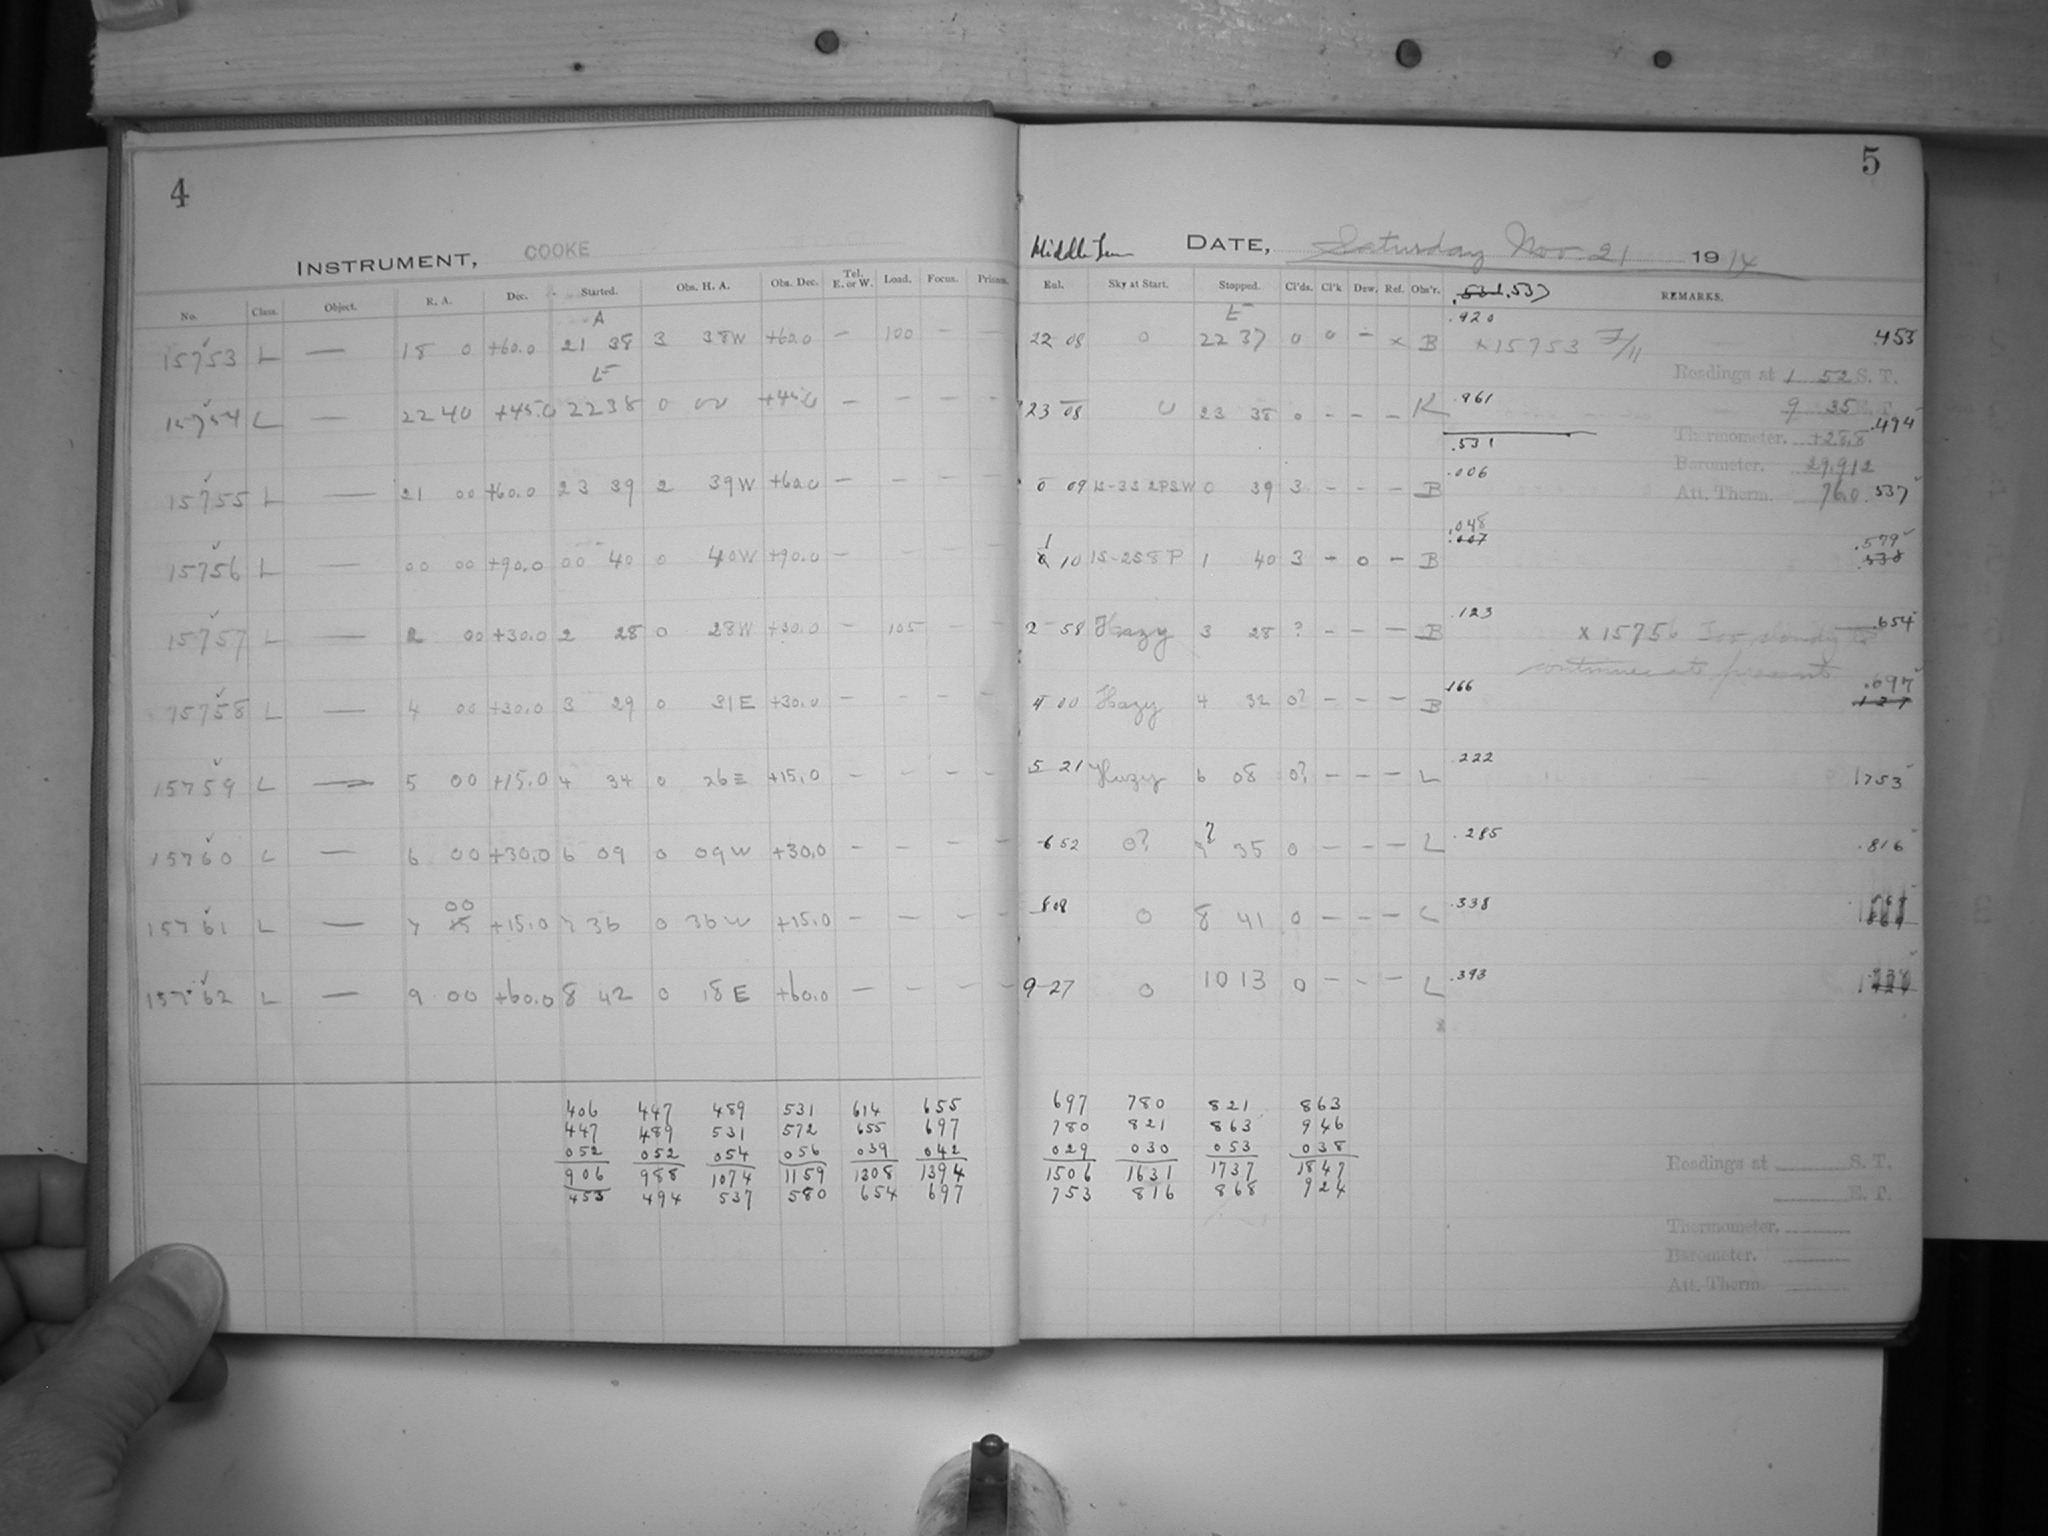 4
INSTRUMENT, COOKE
No. Class. Object. R. A. Dec. Started. Obs. H. A. Obs. Dec. Tel. E. or W. Load. Focus. Prism.
A
15753 L — 18 0 +60.0 21 38 3 38W +60.0 — 100 — —
E
15754 L — 22 40 +45.0 22 38 0 00 +45.0 — — — —
15755 L — 21 00 +60.0 23 39 2 39W +60.0 — — — —
15756 L — 00 00 +90.0 00 40 0 40W +90.0 — — — —
15757 L — 2 00 +30.0 2 28 0 28W +30.0 — 105 — —
15758 L — 4 00 +30.0 3 29 0 31E +30.0 — — — —
15759 L — 5 00 +15.0 4 34 0 26E +15.0 — — — —
15760 L — 6 00 +30.0 6 09 0 09W +30.0 — — — —
00
15761 L — 7 15 +15.0 7 36 0 36W +15.0 — — — —
15762 L — 9 00 +60.0 8 42 0 18E +60.0 — — — —
406 447 489 531 614 655
447 489 531 572 655 697
052 052 054 056 039 042
906 988 1074 1159 1308 1394
453 494 537 580 654 697
5
Middle DATE, Saturday Nov. 21 1914
Eul. Sky at Start. Stopped. Cl'ds. Cl'k Dew. Ref. Obs'r. .531 .537 REMARKS.
E .920
22 08 0 22 37 0 0 — x B x15753 7/11 .453
Readings at 1 52 S. T.
23 08 0 23 38 0 — — — K .961 9 35 E. T.
.494
.531 Thermometer. +28.8
Barometer. 29.912
0 09 0 39 3 — — — B .006 Att. Therm. 76.0 .537
1 .048 .579
0 10 1S-2S8P 1 40 3 — 0 — B .007 .538
2 58 Hazy 3 28 ? — — — B .123 x 15756 Too cloudy to .654
continue at present
4 00 Hazy 4 32 0? — — — B .166 .697
5 21 Hazy 6 08 0? — — — L .222 .753
6 52 0? 7 35 0 — — — L .285 .816
8 08 0 8 41 0 — — — L .338
9 27 0 10 13 0 — — — L .393
697 780 821 863
780 821 863 946
029 030 053 038
1506 1631 1737 1847
753 816 868 924
Readings at S. T.
E. T.
Thermometer.
Barometer.
Att. Therm.